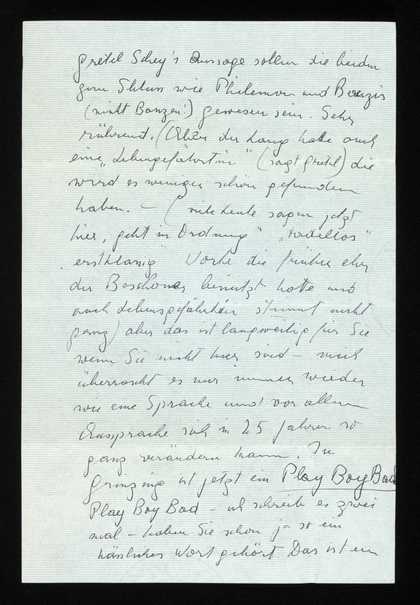 Gretel Schey's Aussage sollen die beiden
zum Schluss wie Philemon und Baucis
(nicht Bonzen!) gewesen sein. Sehr
rührend. (Aber der Lang hatte auch
eine „Lebensgefährtin" (sagt Gretel) die
wird es weniger schön gefunden
haben. – (viele Leute sagen jetzt
hier, „geht in Ordnung" „tadellos"
„erstklassig" Worte die früher eher
der benützt hatte und
auch Lebensgefährtin stimmt nicht
ganz) aber das ist langweilig für Sie
wenn Sie nicht hier sind – mich
überrascht es nur immer wieder
wie eine Sprache und vor allem
Aussprache sich in 25 Jahren so
ganz verändern kann. In
Grinzing ist jetzt ein Play Boy Bad
Play Boy Bad – ich schreibe es zwei
mal – haben Sie schon je so ein
hässliches Wort gehört. Das ist ein